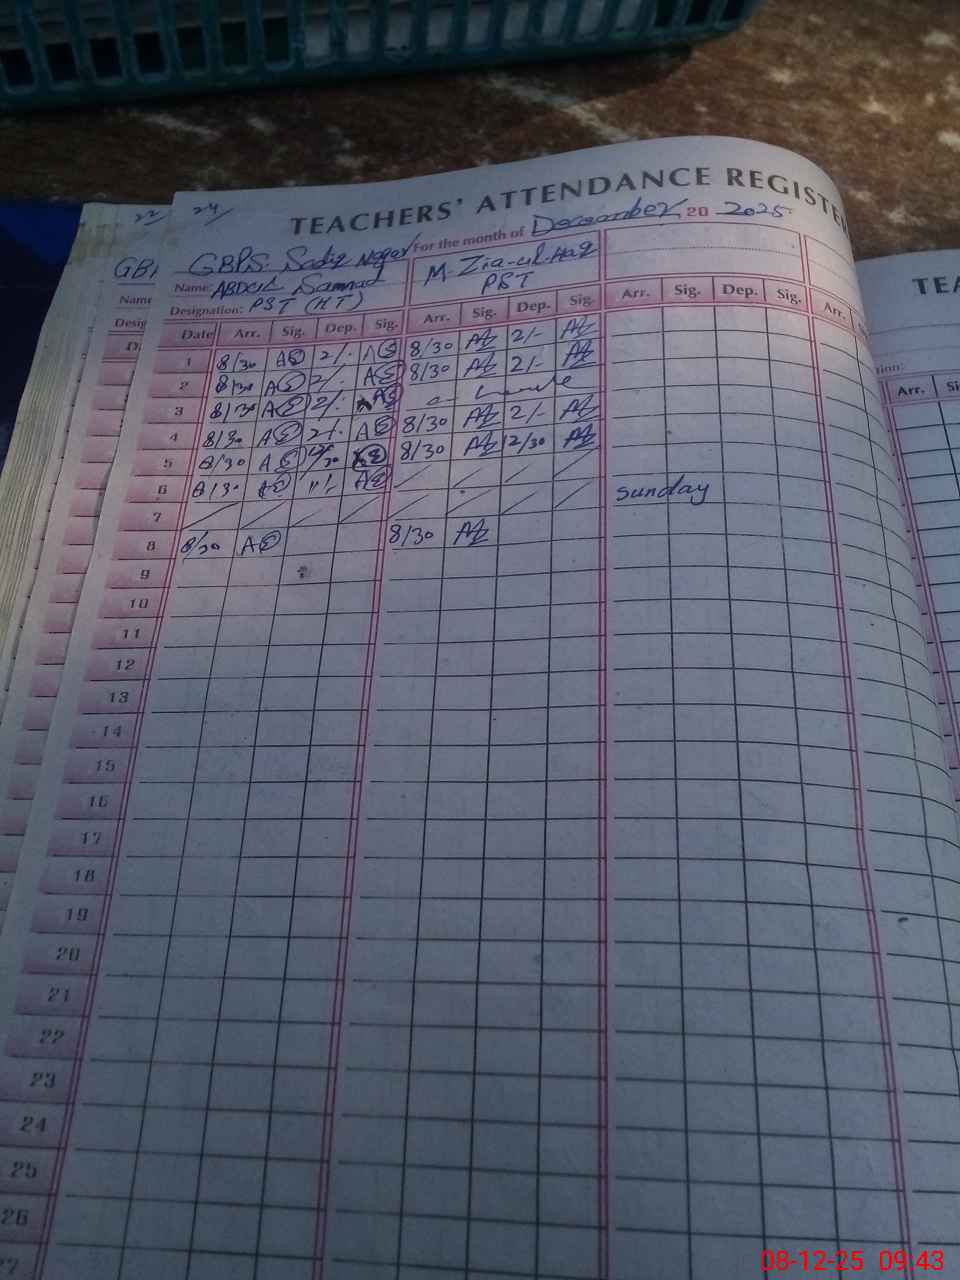 22/ 24/
TEACHERS' ATTENDANCE REGISTE
For the month of December 20 2025
GBPS. Sadiq Nagar
Name: ABDUL Sammad M. Zia-ul-Haq
Designation: PST (HT) PST
Date Arr. Sig. Dep. Sig. Arr. Sig. Dep. Sig. Arr. Sig. Dep. Sig. Arr.
1 8/30 AS 2/- AS 8/30 AZ 2/- AZ
2 8/30 AS 2/- AS 8/30 AZ 2/- AZ
3 8/30 AS 2/- AS
4 8/30 AS 2/- AS 8/30 AZ 2/- AZ
5 8/30 AS 12/30 AS 8/30 AZ 12/30 AZ
6 8/30 AS AS
7 sunday
8 8/30 AS 8/30 AZ
9
10
11
12
13
14
15
16
17
18
19
20
21
22
23
24
25
26
27
GB
Name
Desig
D
TEA
tion:
Arr. Si
08-12-25 09:43